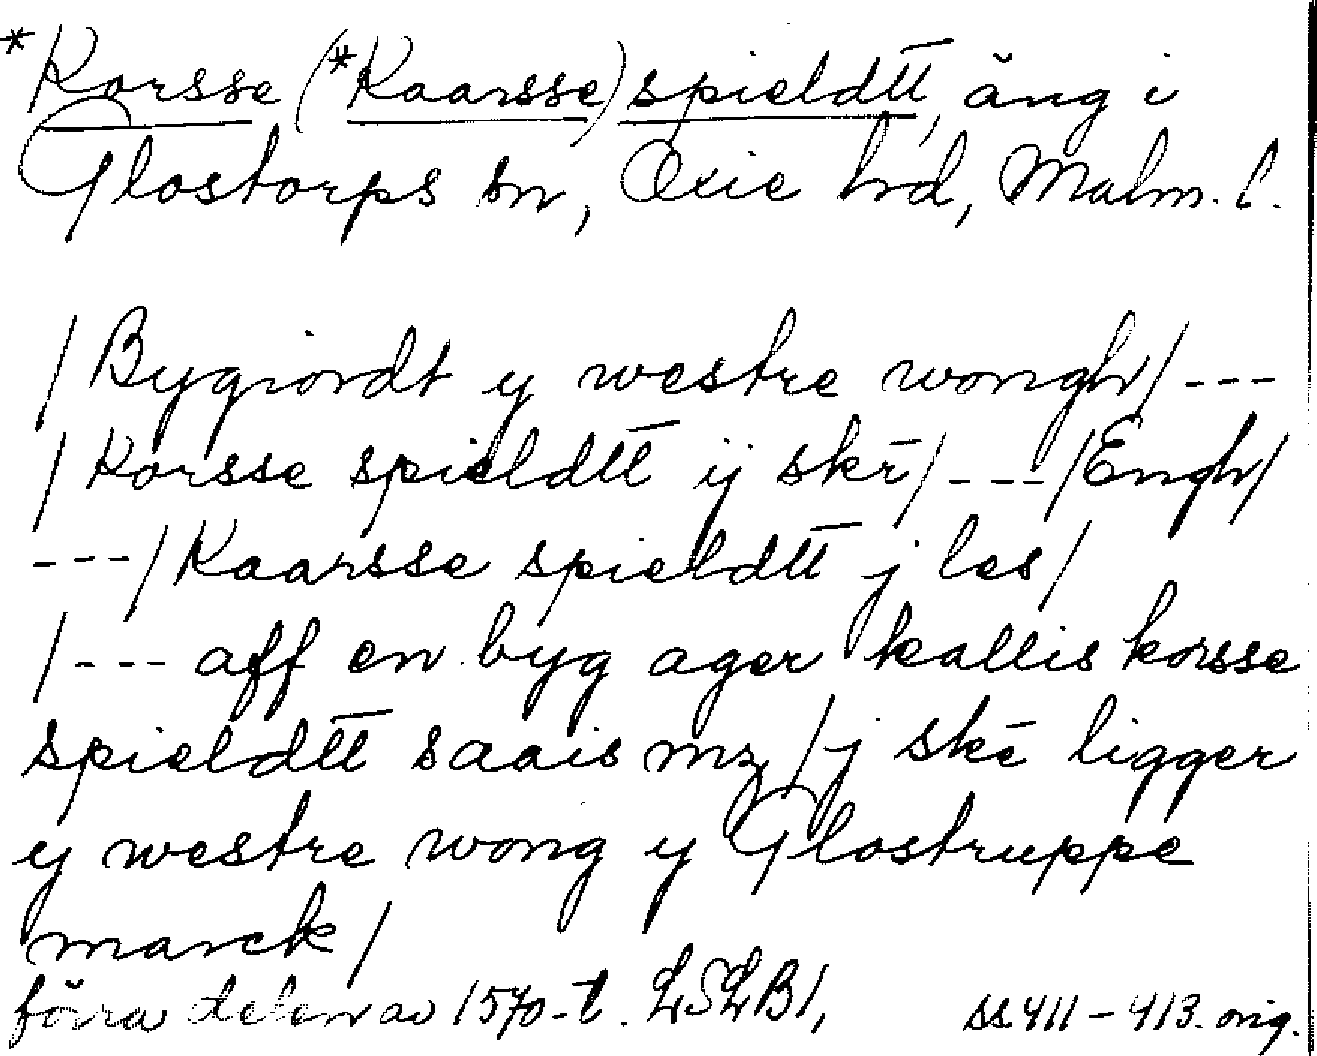 *Korsse (*Kaarsse) spieldtt̄, äng i
Glostorps sn, Oxie hrd, Malm. l.
/Bygiordt y westre wongh/ ---
/Korsse spieldtt̄ ij skr̄/ --- /Engh/
--- /Kaarsse spieldtt̄ j les/
/--- aff en byg ager kallis korsse
spieldtt̄ saais mz /j skē ligger
y westre wong y Glostruppe
marck/
förra delen av 1570-t. LSLB1, ss 411-413. orig.